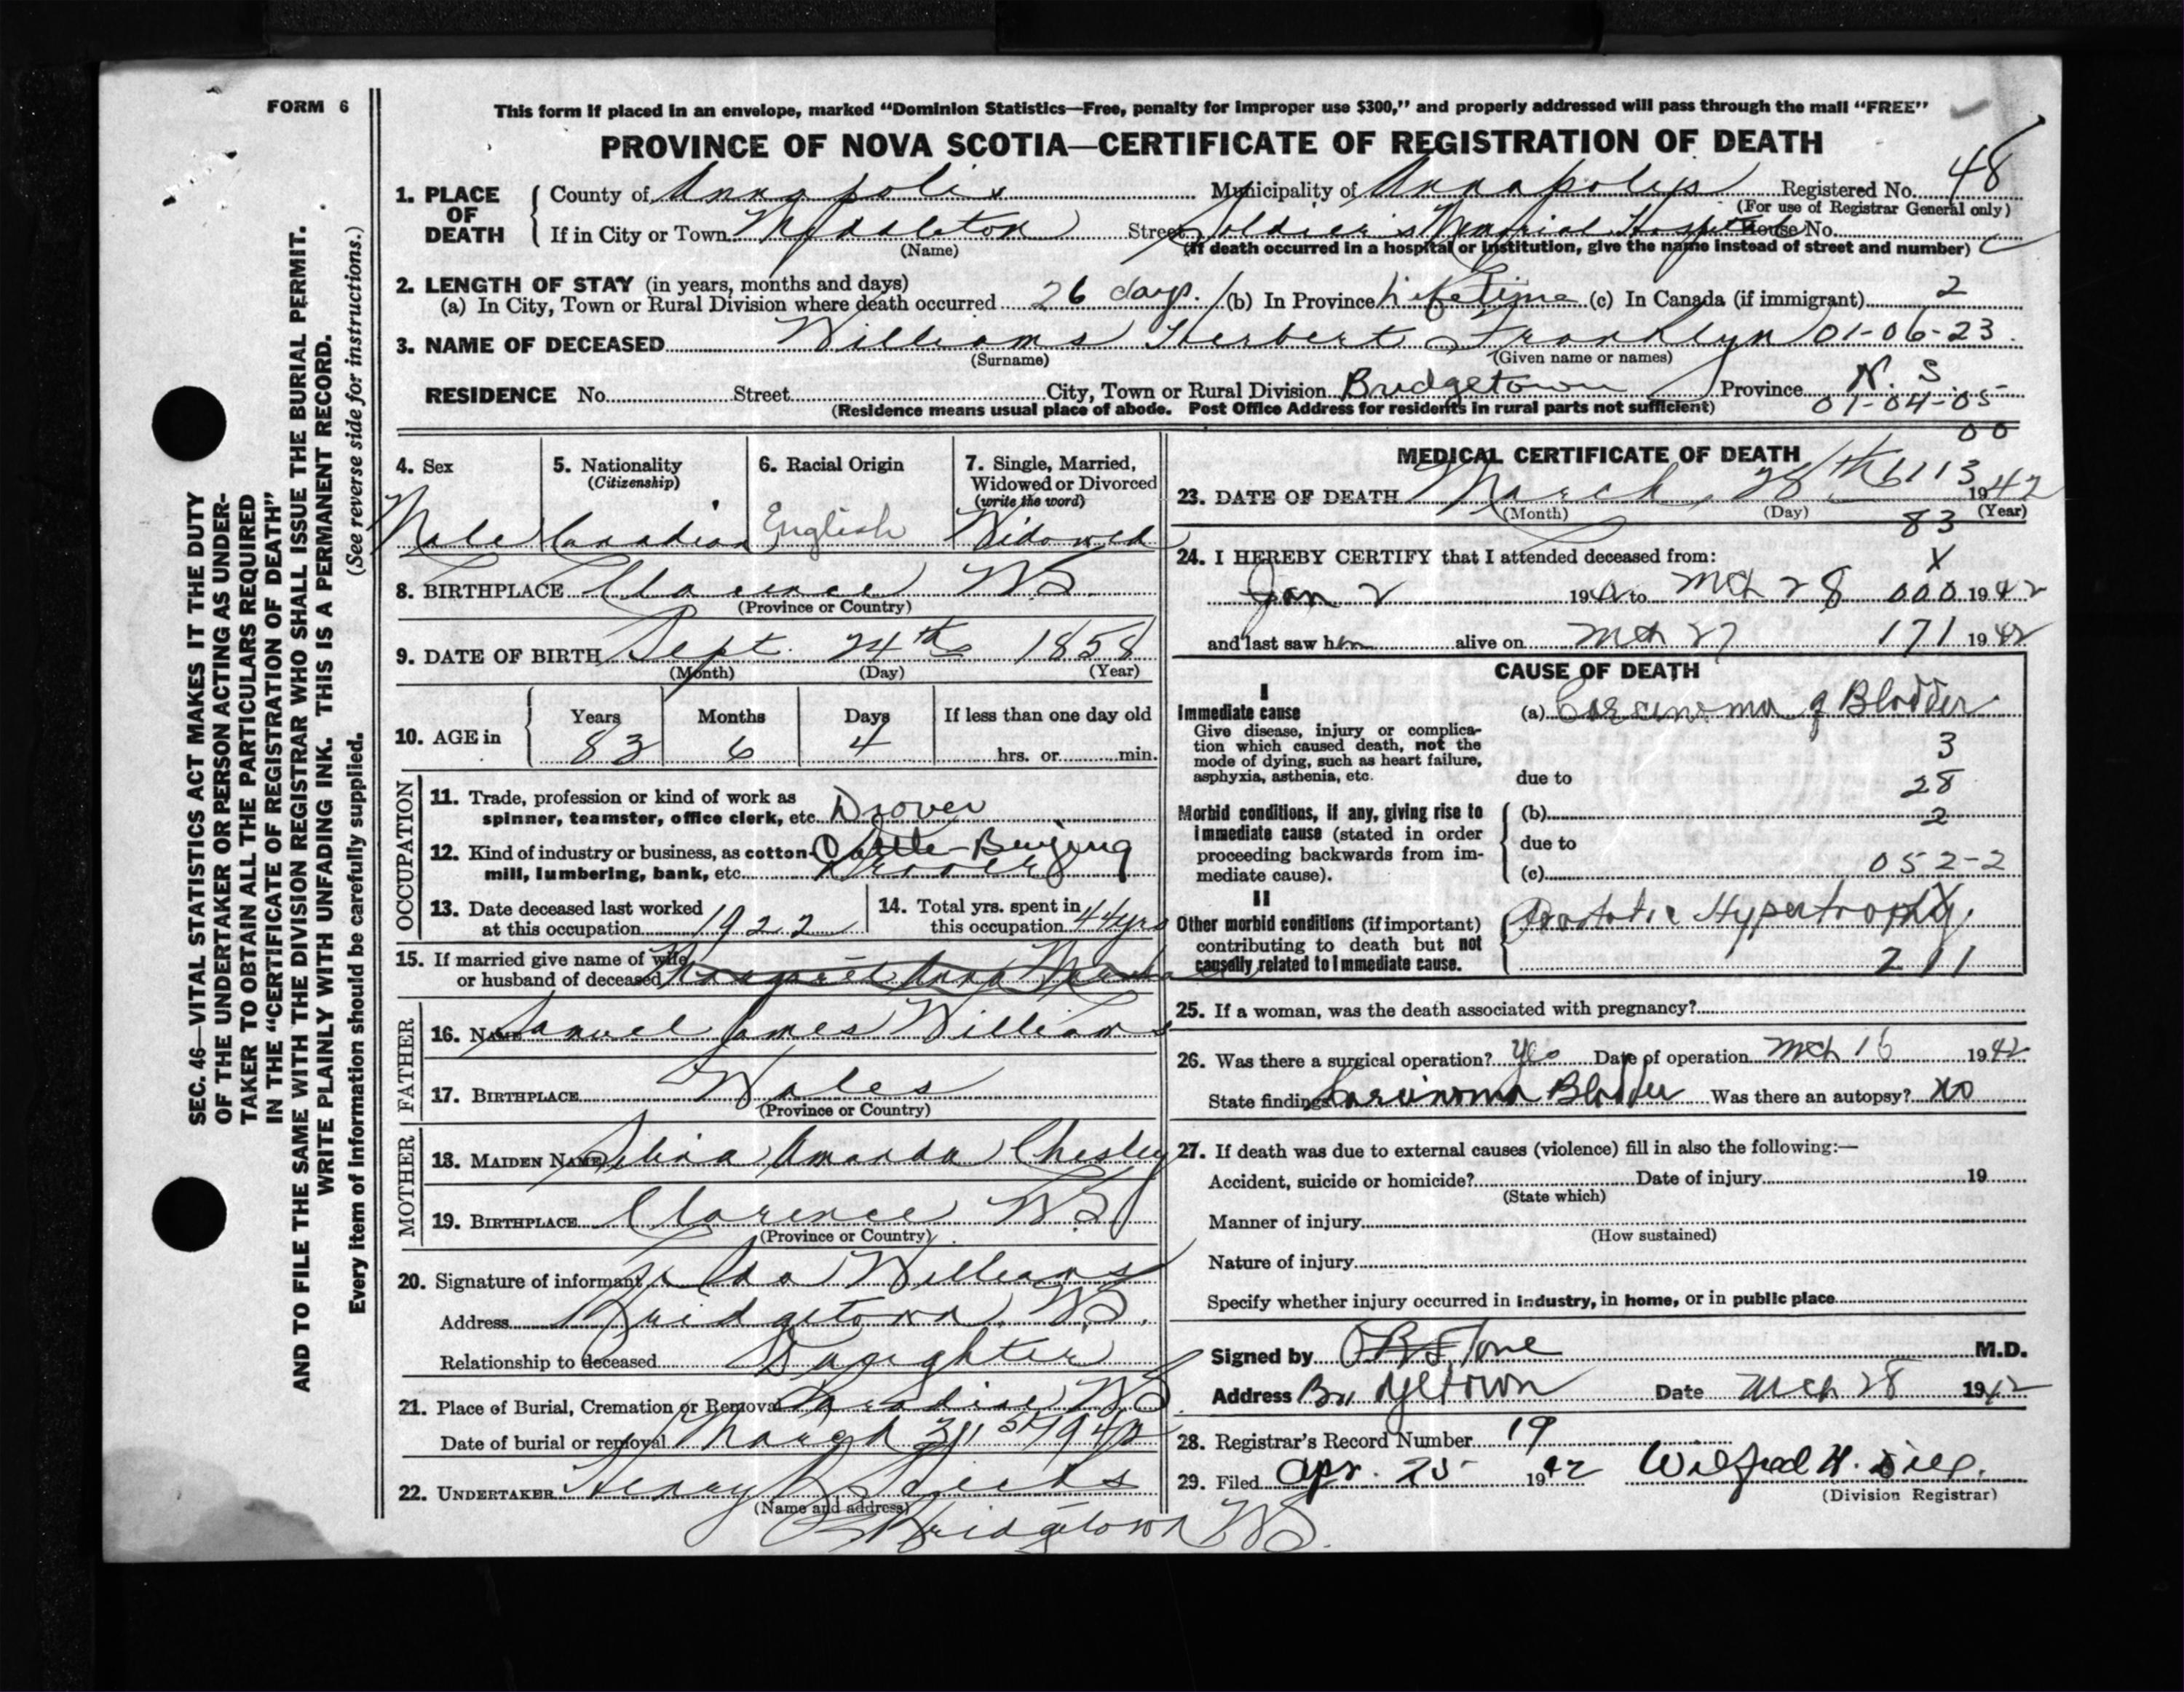 FORM 6
This form if placed in an envelope, marked “Dominion Statistics—Free, penalty for improper use $300,” and properly addressed will pass through the mail “FREE”
PROVINCE OF NOVA SCOTIA—CERTIFICATE OF REGISTRATION OF DEATH
48
1. PLACE OF DEATH County of Annapolis Municipality of Annapolis Registered No.
(For use of Registrar General only)
If in City or Town Middleton Street Soldier's Memorial Hospital House No.
(Name) (If death occurred in a hospital or institution, give the name instead of street and number)
2. LENGTH OF STAY (in years, months and days)
(a) In City, Town or Rural Division where death occurred 26 days. (b) In Province Lifetime (c) In Canada (if immigrant) 2
3. NAME OF DECEASED Williams Herbert Franklyn 01-06-23
(Surname) (Given name or names)
RESIDENCE No. Street City, Town or Rural Division Bridgetown Province N. S
(Residence means usual place of abode. Post Office Address for residents in rural parts not sufficient) 01-04-05
00
SEC. 46—VITAL STATISTICS ACT MAKES IT THE DUTY
OF THE UNDERTAKER OR PERSON ACTING AS UNDER-
TAKER TO OBTAIN ALL THE PARTICULARS REQUIRED
IN THE “CERTIFICATE OF REGISTRATION OF DEATH”
AND TO FILE THE SAME WITH THE DIVISION REGISTRAR WHO SHALL ISSUE THE BURIAL PERMIT.
WRITE PLAINLY WITH UNFADING INK. THIS IS A PERMANENT RECORD.
Every item of information should be carefully supplied. (See reverse side for instructions.)
4. Sex 5. Nationality 6. Racial Origin 7. Single, Married,
(Citizenship) Widowed or Divorced
(write the word)
Male Canadian English Widowed
8. BIRTHPLACE Clarence N.S.
(Province or Country)
9. DATE OF BIRTH Sept. 24th 1858
(Month) (Day) (Year)
10. AGE in Years Months Days If less than one day old
83 6 4 hrs. or min.
OCCUPATION
11. Trade, profession or kind of work as
spinner, teamster, office clerk, etc. Drover
12. Kind of industry or business, as cotton- Cattle-Buying
mill, lumbering, bank, etc.
13. Date deceased last worked
at this occupation 1922
14. Total yrs. spent in
this occupation 44 yrs
15. If married give name of wife
or husband of deceased Margaret Anna
FATHER
16. NAME Samuel James Williams
17. BIRTHPLACE Wales
(Province or Country)
MOTHER
18. MAIDEN NAME Amanda Chesley
19. BIRTHPLACE Clarence N.S.
(Province or Country)
20. Signature of informant Williams
Address Bridgetown N.S.
Relationship to deceased Daughter
21. Place of Burial, Cremation or Removal Paradise N.S.
Date of burial or removal March 31st 1942
22. UNDERTAKER Henry Hicks
(Name and address)
Bridgetown N.S.
MEDICAL CERTIFICATE OF DEATH
6113
23. DATE OF DEATH March 28th 1942
(Month) (Day) (Year)
83
24. I HEREBY CERTIFY that I attended deceased from: X
Jan 2 1942 to Mch 28 000 1942
and last saw him alive on Mch 27 171 1942
CAUSE OF DEATH
I
Immediate cause (a) Carcinoma of Bladder
Give disease, injury or complica-
tion which caused death, not the
mode of dying, such as heart failure,
asphyxia, asthenia, etc. due to
3
28
Morbid conditions, if any, giving rise to
immediate cause (stated in order
proceeding backwards from im-
mediate cause).
(b) 2
due to
(c) 052-2
II
Other morbid conditions (if important)
contributing to death but not
causally related to immediate cause.
Prostatic Hypertrophy.
211
25. If a woman, was the death associated with pregnancy?
26. Was there a surgical operation? yes Date of operation Mch 16 1942
State findings Carcinoma Bladder Was there an autopsy? no
27. If death was due to external causes (violence) fill in also the following:—
Accident, suicide or homicide? Date of injury 19
(State which)
Manner of injury
(How sustained)
Nature of injury
Specify whether injury occurred in industry, in home, or in public place
Signed by M.D.
Address Bridgetown Date Mch 28 1942
28. Registrar's Record Number 19
29. Filed Apr. 25 1942 Wilfred H.
(Division Registrar)